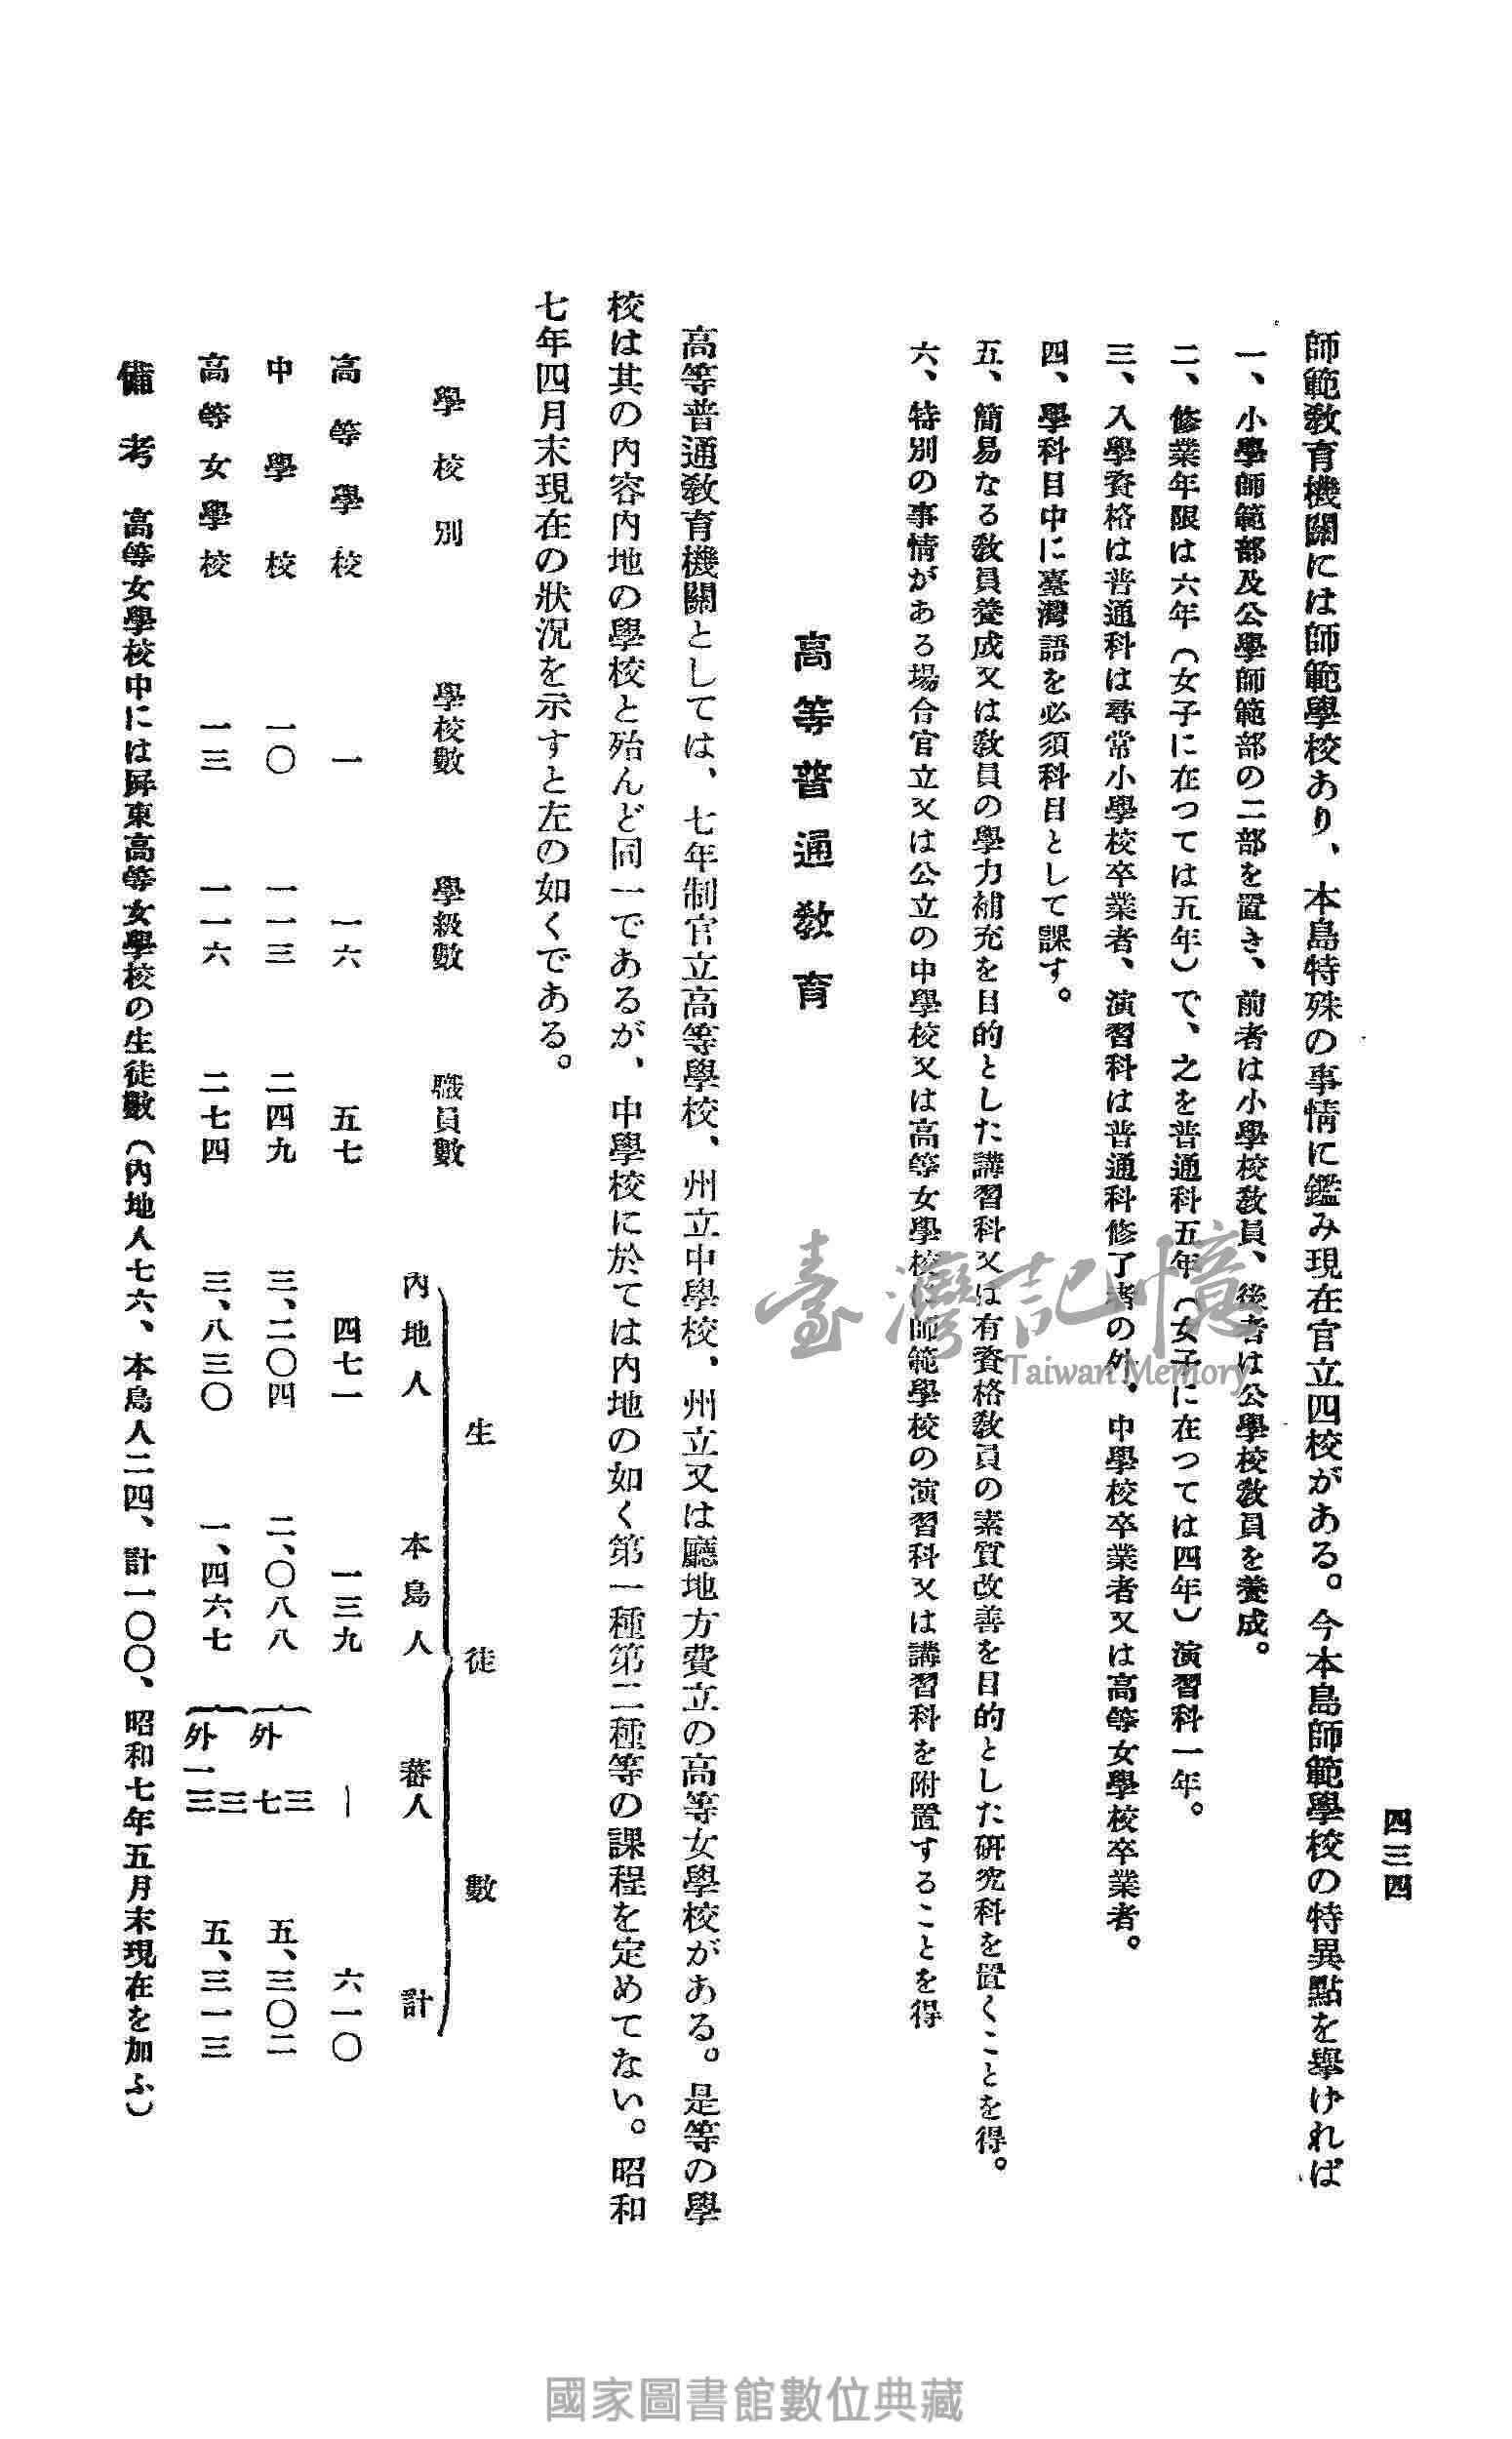 四三四
師範教育機關には師範學校あり、本島特殊の事情に鑑み現在官立四校がある。今本島師範學校の特異點を擧ければ
一、小學師範部及公學師範部の二部を置き、前者は小學校教員、後者は公學校教員を養成。
二、修業年限は六年（女子に在つては五年）で、之を普通科五年（女子に在つては四年）演習科一年。
三、入學資格は普通科は尋常小學校卒業者、演習科は普通科修了者の外、中學校卒業者又は高等女學校卒業者。
四、學科目中に臺灣語を必須科目として課す。
五、簡易なる教員養成又は教員の學力補充を目的とした講習科又は有資格教員の素質改善を目的とした研究科を置くことを得。
六、特別の事情がある場合官立又は公立の中學校又は高等女學校に師範學校の演習科又は講習科を附置することを得
高等普通教育
高等普通教育機關としては、七年制官立高等學校、州立中學校、州立又は廳地方費立の高等女學校がある。是等の學
校は其の内容内地の學校と殆んど同一であるが、中學校に於ては内地の如く第一種第二種等の課程を定めてない。昭和
七年四月末現在の狀況を示すと左の如くである。
學校別 學校數 學級數 職員數 生徒數 內地人 本島人 蕃人 計
高等學校 一 一六 五七 四七一 一三九 ｜ 六一〇
中學校 一〇 一一三 二四九 三、二〇四 二、〇八八 三 外七 五、三〇二
高等女學校 一三 一一六 二七四 三、八三〇 一、四六七 三 外一三 五、三一三
備考 高等女學校中には屛東高等女學校の生徒數（內地人七六、本島人二四、計一〇〇、昭和七年五月末現在を加ふ）
臺灣記憶
Taiwan Memory
國家圖書館數位典藏